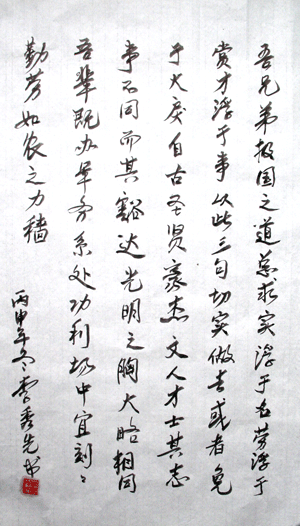 吾兄弟报国之道总求实浮于名劳浮于
赏才浮于事以此三句切实做去或者免
于大戾自古圣贤豪杰文人才士其志
事不同而其豁达光明之胸大略相同
吾辈既办军务系处功利场中宜刻々
勤劳如农之力穑
丙申年冬李秀先书